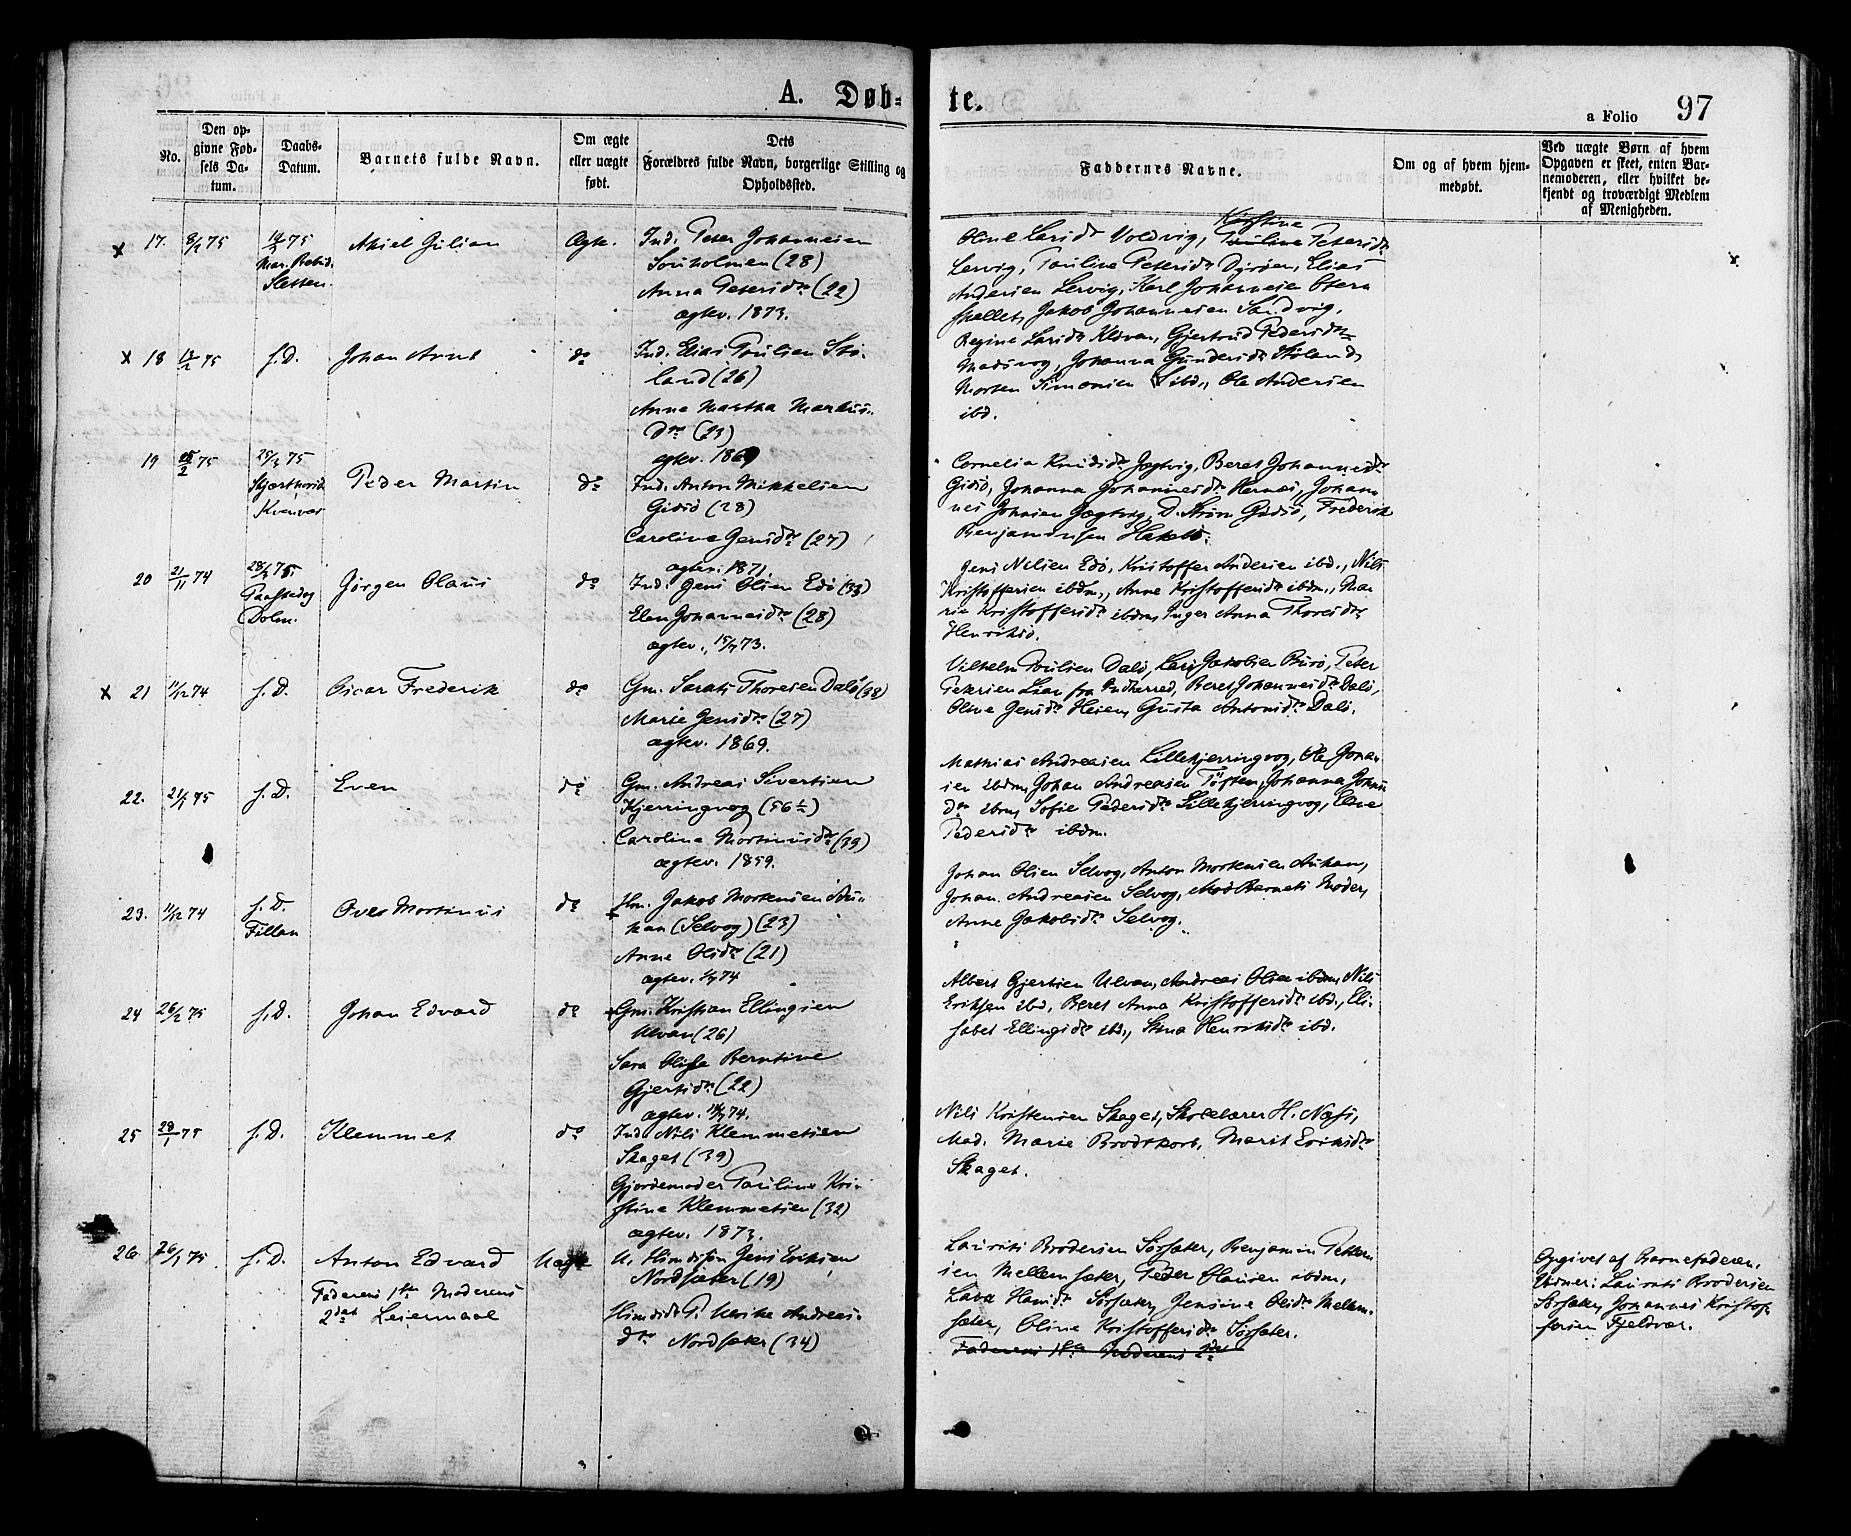 A. Døb=
te.
a Folio 97
No.
Den op-
givne Fød-
sels Da-
tum.
Daabs-
Datum.
Barnets fulde Navn.
Om ægte
eller uægte
født.
Dets
Forældres fulde Navn, borgerlige Stilling og
Opholdssted.
Faddernes Navne.
Om og af hvem hjem-
medøbt.
Ved uægte Børn af hvem
Opgaven er skeet, enten Bar-
nemoderen, eller hvilket be-
kjendt og troværdigt Medlem
af Menigheden.
x 17. 8/2 75
14/3 75
Mar. Bebud.
Sletten.
Axiel Gilian
Ægte.
Ind. Peter Johannesen
Souholmen (28)
Anna Petersdr (22)
ægtev. 1873.
Kirstine
Oline Larsdr Voldvig, Pauline Petersdr
Lervig, Pauline Petersdr Dyrøen, Elias
Andersen Lervig, Karl Johannesen
Jakob Johannesen Sandvig.
x 18 75
s. D.
Johan Arnt
do
Ind. Elias Paulsen Stø-
land (26)
Anne Martha Markus-
dtr (23)
ægtev. 1869
Regine Larsdr Ulvan, Gjertrud Pedersdr
Madsvog, Johanna Gundersdr Støland,
Morten Simonsen ibd., Ole Andersen
ibd.
19 75
25/3 75
Skjærthorsd.
Kvenvær
Peder Martin
do
Ind. Anton Mikkelsen
Gidsø (28)
Caroline Jensdr (27)
ægtev. 1871.
Cornelia Knudsdr Jægtvig, Beret Johannesdr
Gidsø, Johanna Johannesdr Hernes, Johan-
nes Johnsen Jægtvig, D. Strøm Gidsø, Frederik
Benjaminsen
20 21/11 74
28/3 75.
Paaskedag
Dolm.
Jørgen Olaus
do
Ind. Jens Olsen Edø (33)
Elen Johannesdr (28)
ægtev. 15/7 73.
Jens Nilsen Edø, Kristoffer Andersen ibd., Nils
Kristoffersen ibdm., Anne Kristoffersdr ibdm., Ma-
rie Kristoffersdr ibdm, Inger Anna Thoresdr
Henriksø.
x 21 11/12 74
s. D.
Oscar Frederik
do
Gm. Sarats Thoresen Dalø (38)
Marie Jensdr (27)
ægtev. 1869.
Vilhelm Poulsen Dalø, Lars Jakobsen Burø, Peter
Petersen Lian fra Indherred, Beret Johannesdr Dalø,
Oline Jensdr Heien, Gusta Antonsdr Dalø.
22. 21/1 75
s. D.
Even
do
Gm. Andreas Sivertsen
Kjerringvog (56½)
Caroline Martinusdr (39)
ægtev. 1859.
Mathias Andreasen Lillekjerringvog, Ole Johan-
sen ibdm, Johan Andreasen Tøften, Johanna Johans-
dtr ibdm, Sofie Pedersdr Lillekjerringvog, Elene
Pedersdr ibdm.
23. 11/12 74
s. D.
Fillan
Oves Martinus
do
Hm. Jakob Mortensen Au-
kan (Selvog) (23)
Anne Olsdr (21)
ægtev. 74
Johan Olsen Selvog, Anton Mortensen Aukan,
Johan Andreasen Selvog, Mod Barnets Moder,
Anne Jakobsdr Selvog.
24 26/2 75
s. D.
Johan Edvard
do
Gm. Kristian Ellingsen
Ulvan (26)
Sara Olise Berntine
Gjertsdr (22)
ægtev. 74.
Albert Gjertsen Ulvan, Andreas Olsen ibdm, Nils
Eriksen ibd, Beret Anna Kristoffersdr ibd., Eli-
sabet Ellingsdr ibd., Stina Henriksdr ibd.
25 75
s. D.
Klemmet
do
Ind. Nils Klemmetsen
Skaget (39)
Gjordemoder Pauline Kri-
stine Klemmetsen (32)
ægtev. 1873.
Nils Kristensen Skaget, Skolelærer H. Næss,
Mad. Marie Brodtkorb, Marit Eriksdr
Skaget.
26 26/1 75
s. D.
Anton Edvard
Faderens 1ste Moderens
2det Leiermaal
Uægte
U. Himdssøn Jens Eriksen
Nordsæter (19)
Himdsdt P. Ulrika Andreas-
dtr Nordsæter (34)
Laurits Brodersen Sørsæter, Benjamin Petter-
sen Mellemsæter, Peder Clausen ibdm,
Lava Hansdr Sørsæter, Jensine Olsdr Mellem-
sæter, Oline Kristoffersdr Sørsæter.
Faderens 1ste Moderens 2det
Opgivet af Barnefaderen.
Vidner: Laurits Brodersen
Sørsæter, Johannes Kristof-
fersen Fjeldvær.